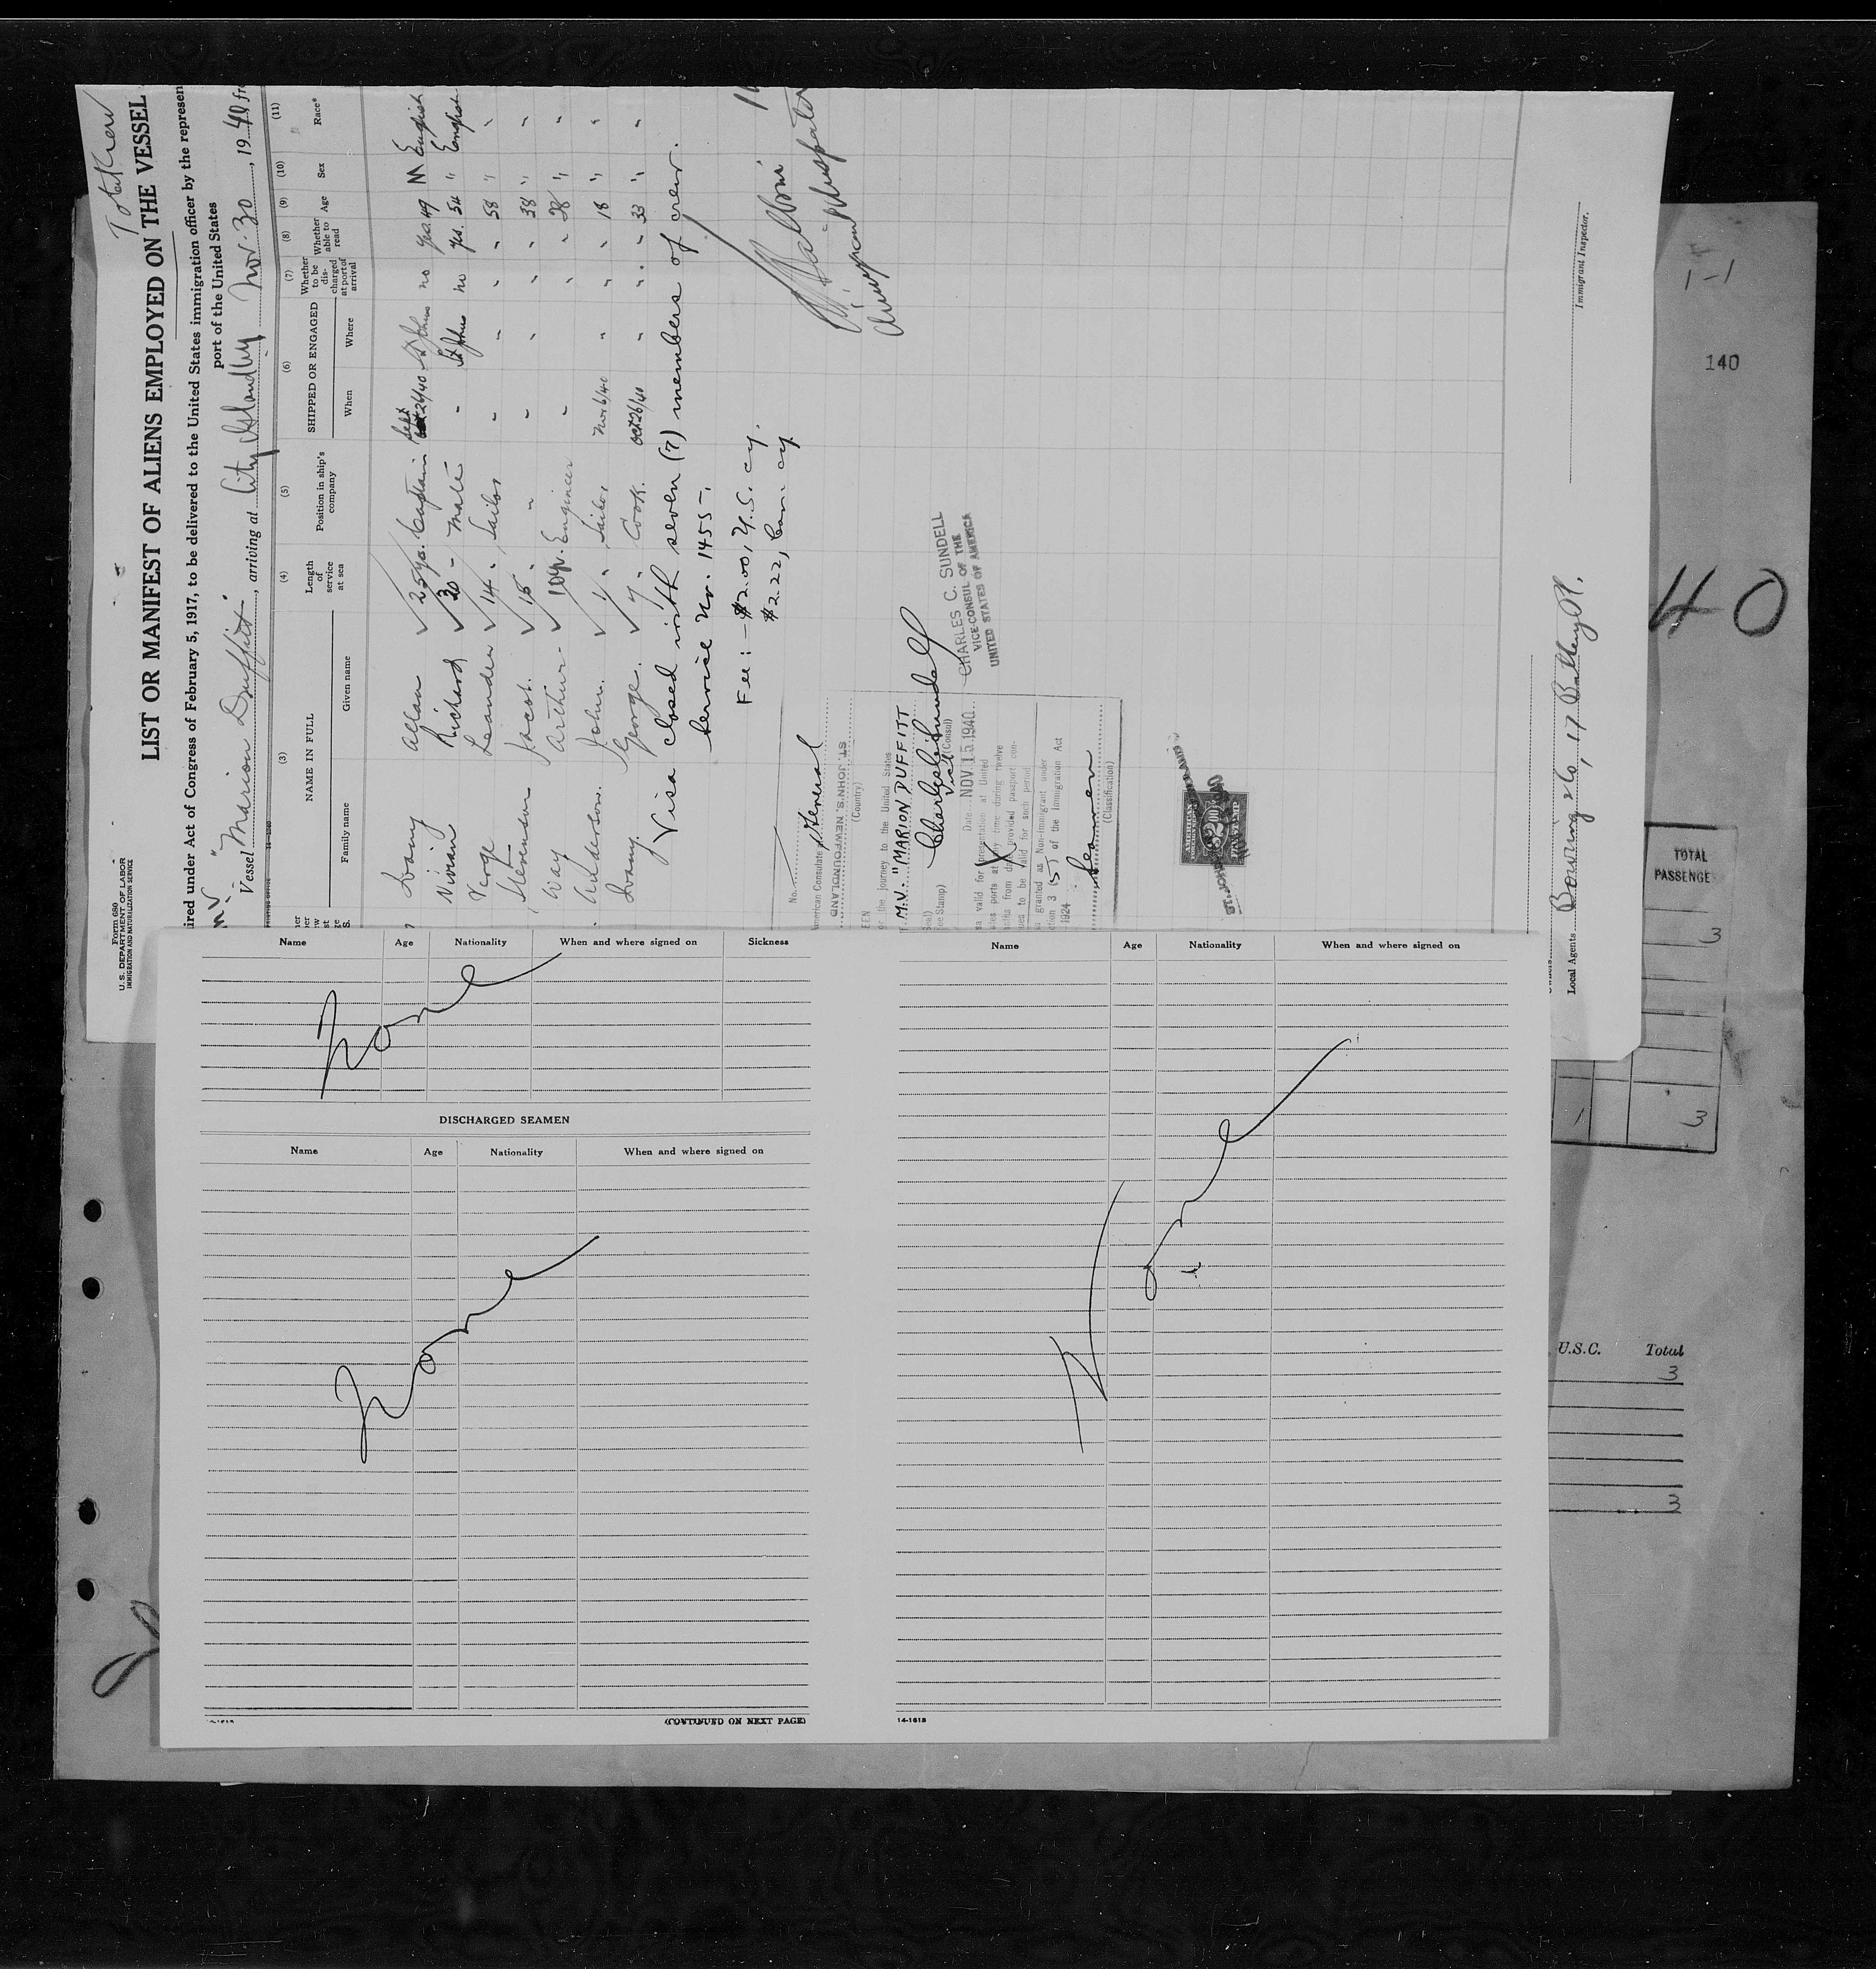 LIST OR MANIFEST OF ALIENS EMPLOYED ON THE VESSEL
Form 680
U. S. DEPARTMENT OF LABOR
IMMIGRATION AND NATURALIZATION SERVICE
ired under Act of Congress of February 5, 1917, to be delivered to the United States immigration officer by the represen
port of the United States
Vessel "Marion Duffitt", arriving at City Island N.Y. Nov. 30, 1940 fr
(3) (4) (5) (6) (7) (8) (9) (10) (11)
NAME IN FULL
Family name Given name
Length of service at sea
Position in ship's company
SHIPPED OR ENGAGED
When Where
Whether to be discharged at port of arrival
Whether able to read
Age Sex Race*
Ivany Allan 25 yrs. Captain Sept 26/40 St Johns no yes 49 M English
Vivian Richard 30 - Mate - St Johns no yes. 54 " English
Verge Leander 14 " Sailor - - - - 58 " "
Stevenson Jacob. 15 " " - " " " 38 " "
Way Arthur 10 yr. Engineer - " " 28 " "
Anderson. John. 1 " Sailor Nov 6/40 " " " 18 " "
Ivany. George. 7 " Cook. Oct 26/40 " " " 33 " "
Visa closed with seven (7) members of crew.
Service No. 1455-
Fee: - $2.00, U.S. cy.
$2.22, Can. cy.
No.
American Consulate General
ST. JOHN'S, NEWFOUNDLAND
(Country)
EEN
or the journey to the United States
M.V. "MARION DUFFITT"
Charles C. Sundell
Vice (Consul)
CHARLES C. SUNDELL
VICE-CONSUL OF THE
UNITED STATES OF AMERICA
Date NOV. 15. 1940
a valid for presentation at United
tes ports at any time during twelve
nths from date provided passport con-
ues to be valid for such period
granted as Non-Immigrant under
tion 3 (5) of the Immigration Act
1924
Seamen
(Classification)
AMERICAN
$2.00
Immigrant Inspector.
Local Agents Bowring & Co, 17 Battery Pl.
1-1
140
40
TOTAL
PASSENGE
3
1 3
U.S.C. Total
3
3
Name Age Nationality When and where signed on Sickness
None
DISCHARGED SEAMEN
Name Age Nationality When and where signed on
None
(CONTINUED ON NEXT PAGE)
Name Age Nationality When and where signed on
None
14-1618